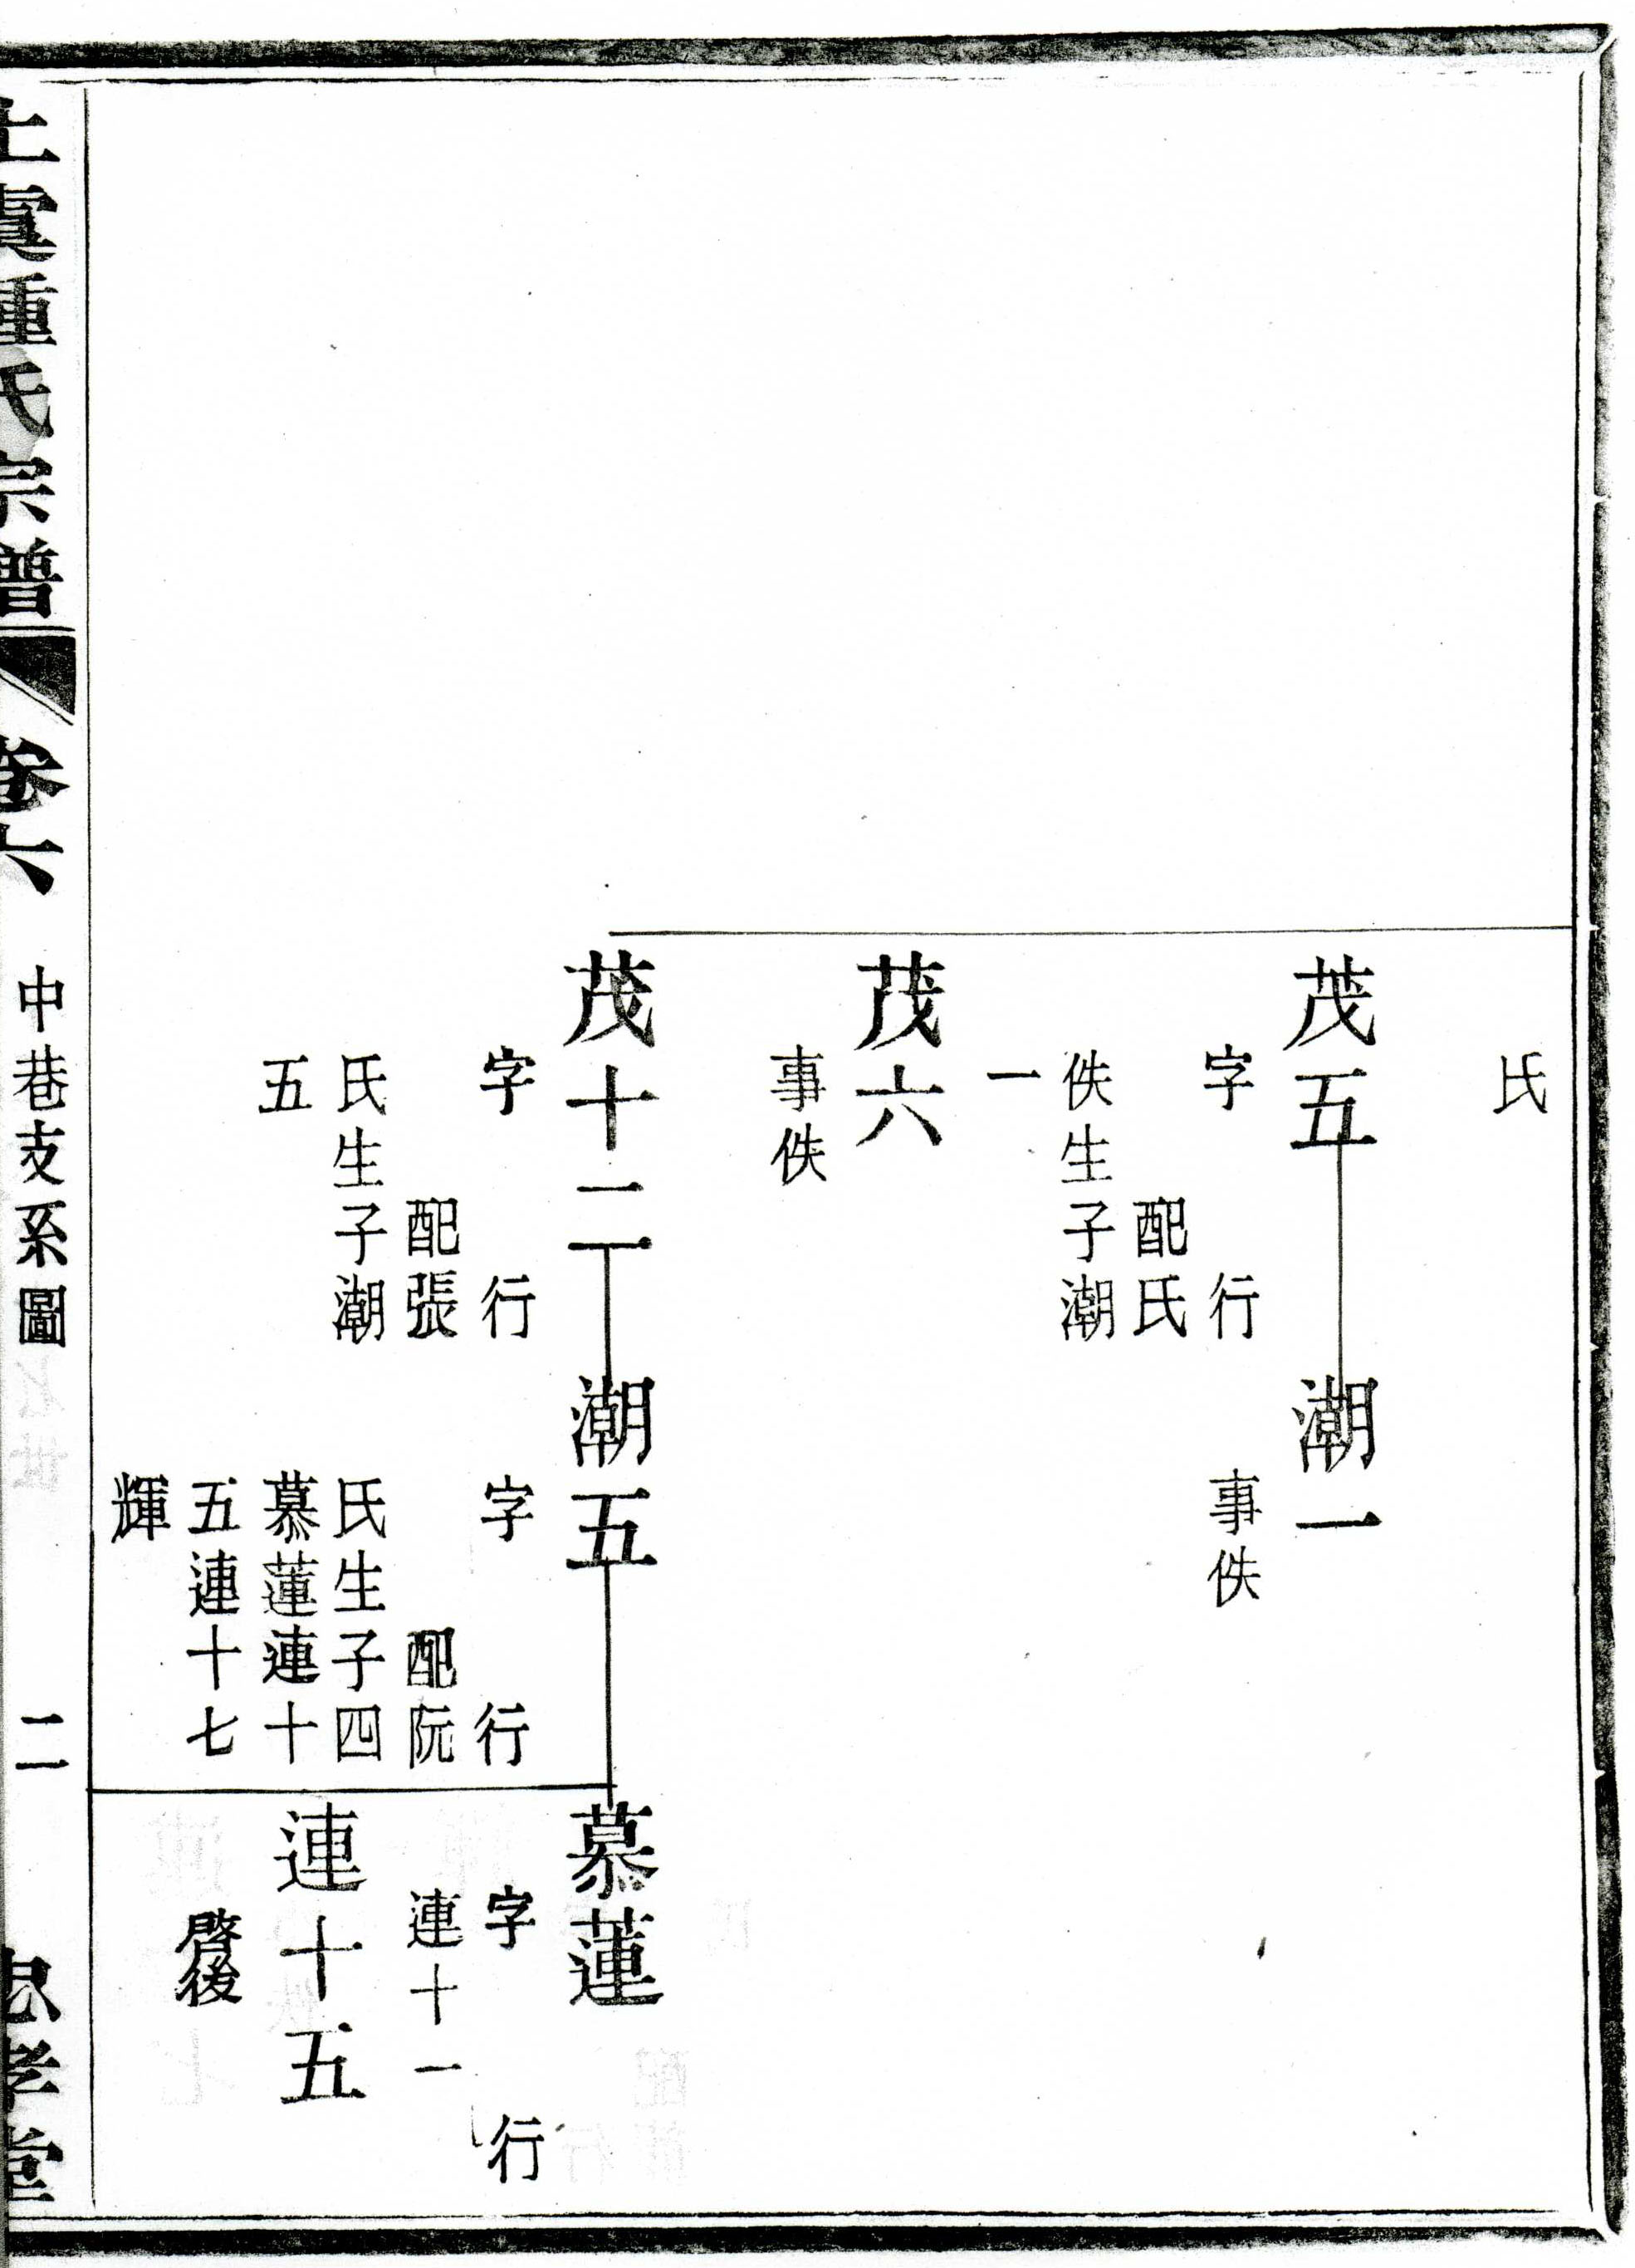 氏
茂五
字 行
配氏
佚生子潮
一
潮一
事佚
茂六
事佚
茂十二
字 行
配張
氏生子潮
五
潮五
字 行
配阮
氏生子四
慕蓮連十
五連十七
輝
慕蓮
字 行
連十一
連十五
啓後
上虞鍾氏宗譜
卷六
中巷支系圖
二
忠孝堂